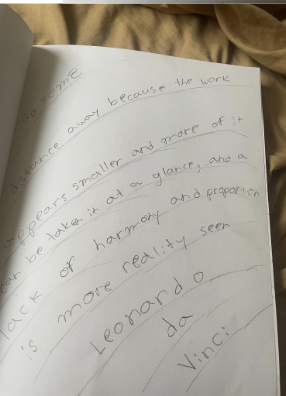 to some
distance away because the work
appears smaller and more of it
can be taken in at a glance, and a
lack of harmony and proportion
is more reality seen
Leonardo
da
Vinci